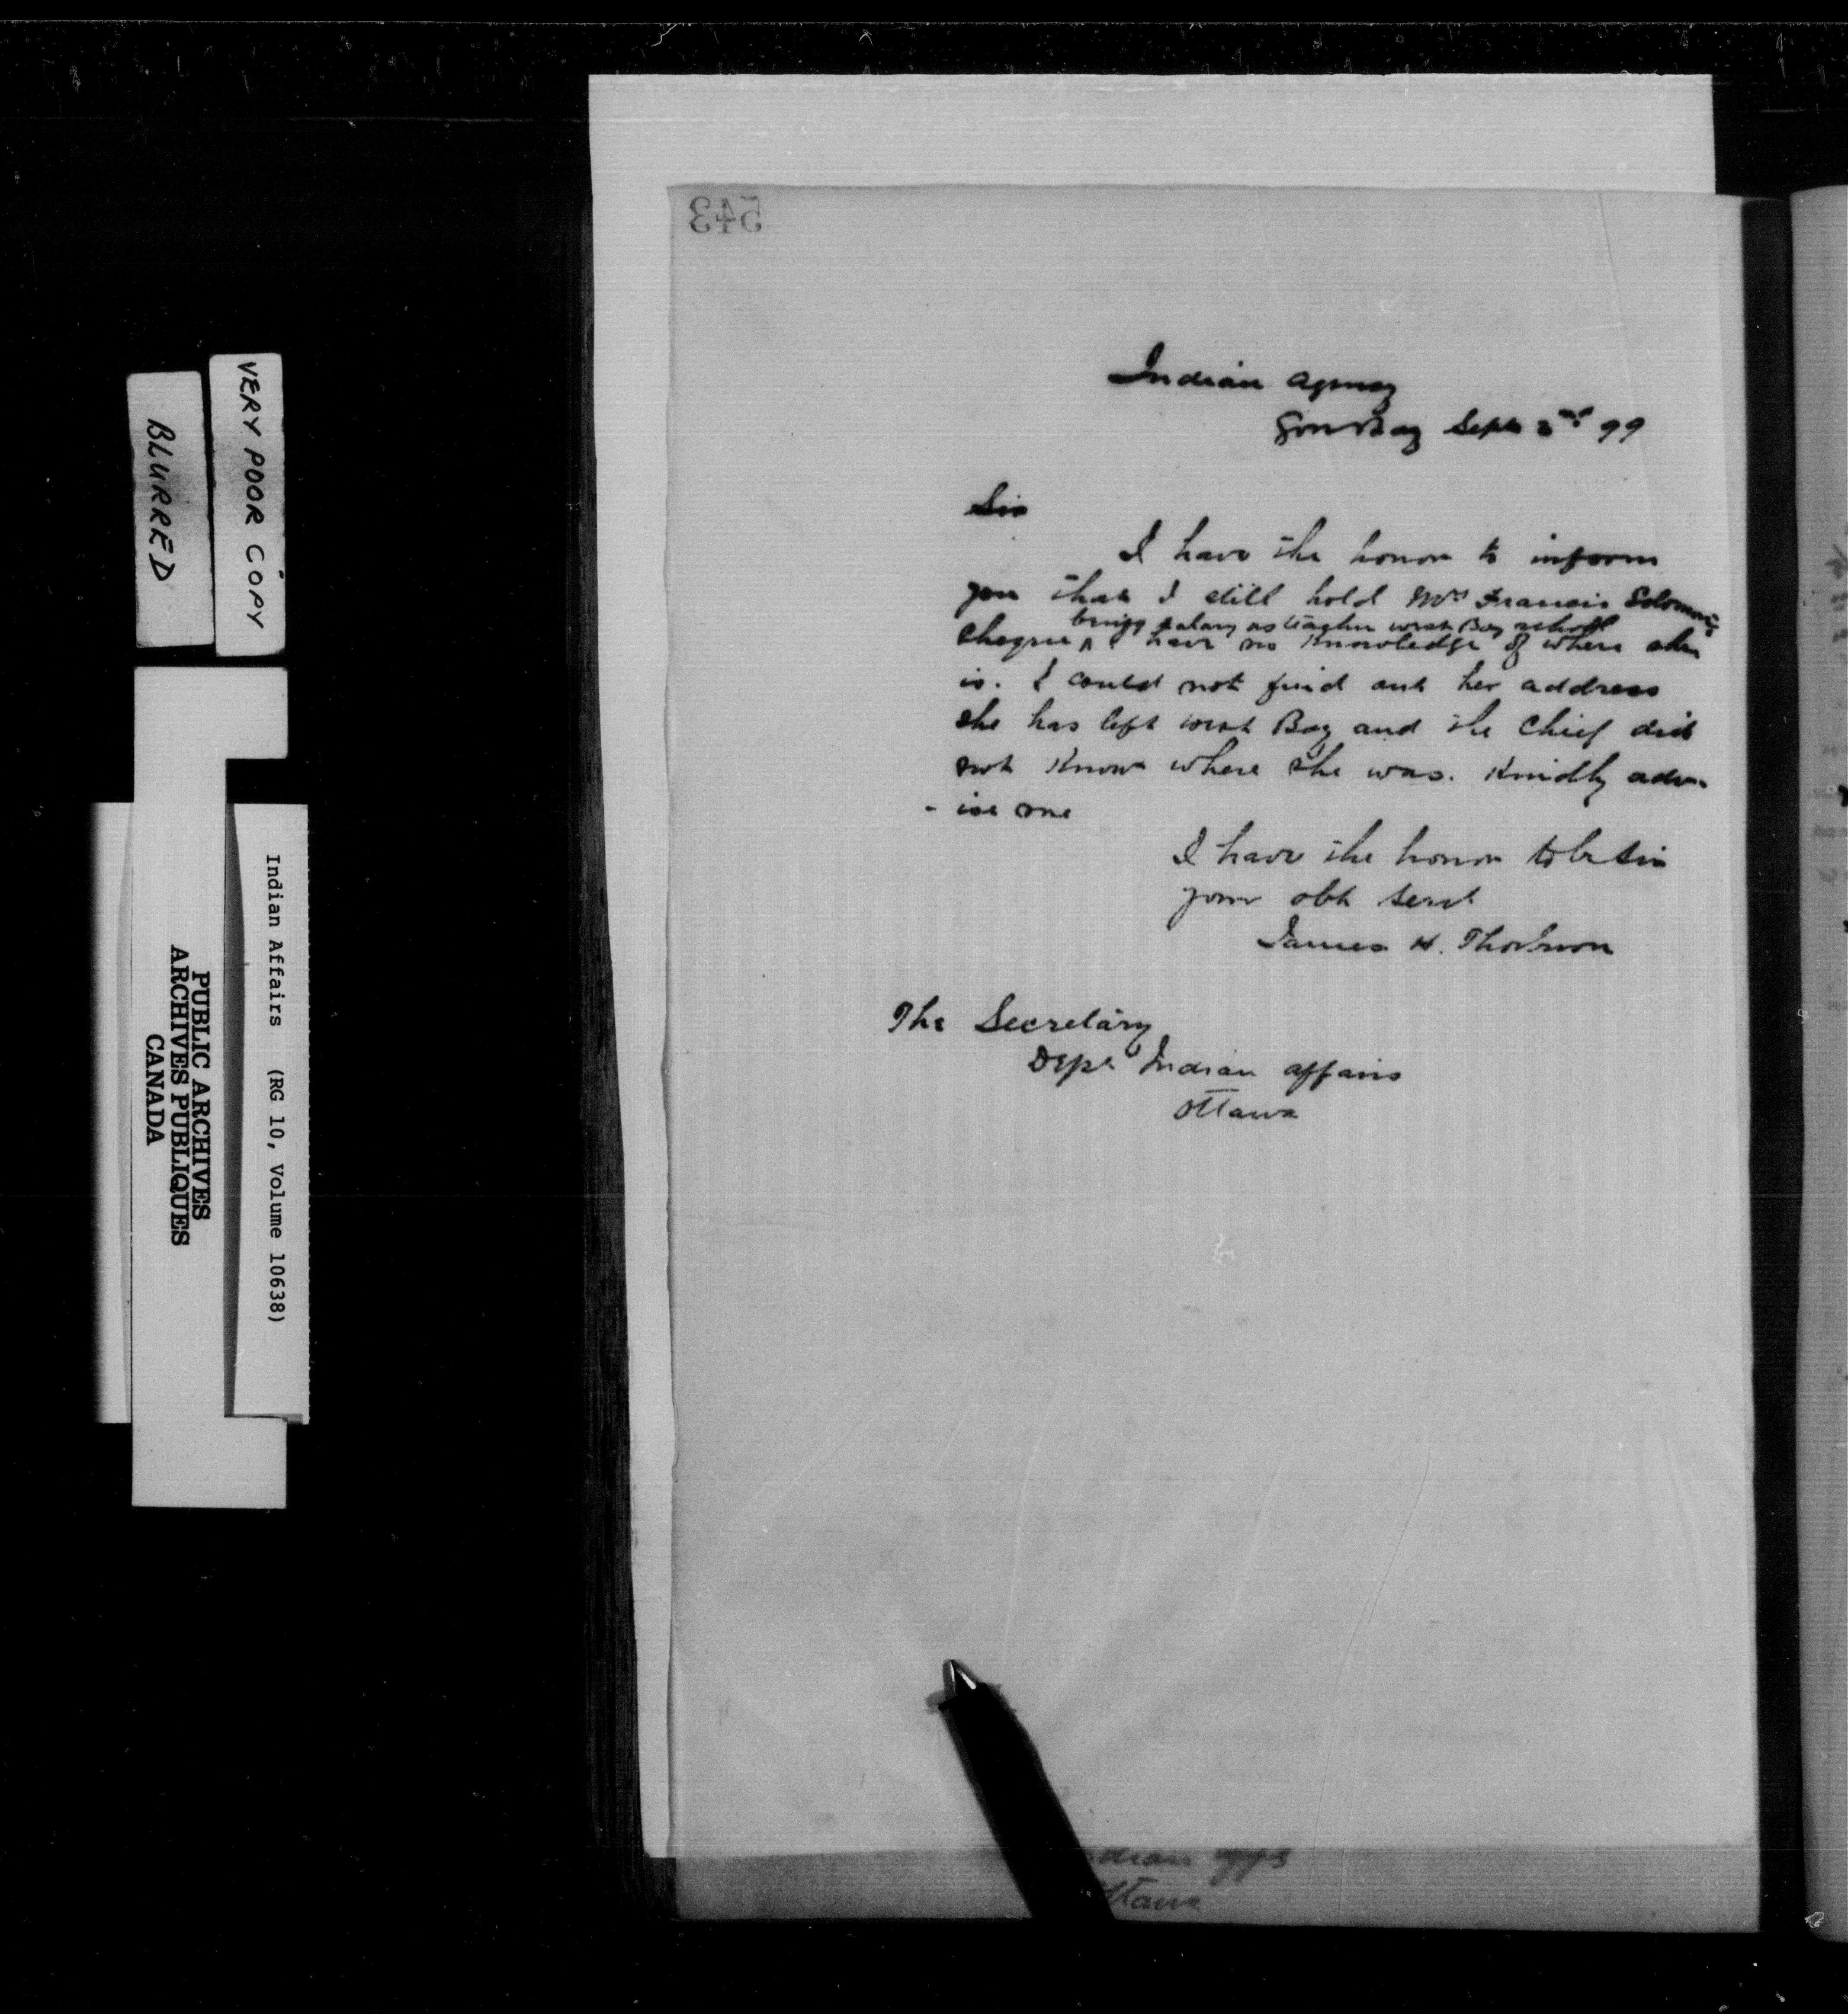 VERY POOR COPY
BLURRED
Indian Affairs (RG 10, Volume 10638)
PUBLIC ARCHIVES
ARCHIVES PUBLIQUES
CANADA
543
Indian Agency
Gore Bay Sept 99
Sir
I have the honor to inform
you that I still hold Mrs Francis Solomon's
being salary as teacher West Bay school
cheque ^ I have no knowledge of where she
is. I could not find out her address
she has left West Bay and the Chief did
not know where she was. Kindly adv-
- ise me
I have the honor to be Sir
your obt servt
James H. Thorburn
The Secretary
Dept Indian affairs
Ottawa